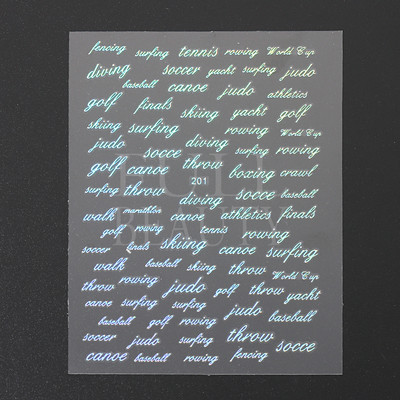 fencing surfing tennis rowing World Cup
diving soccer yacht surfing judo
baseball canoe judo athletics
golf finals skiing yacht golf
skiing surfing rowing World Cup
judo socce diving surfing rowing
golf canoe throw boxing crawl
FULL
201
surfing throw diving socce baseball
walk marathlon canoe athletics finals
BEAUTY
golf rowing tennis rowing
soccer finals skiing canoe surfing
walk baseball skiing throw World Cup
throw rowing judo golf throw yacht
canoe surfing surfing judo
baseball golf rowing baseball
soccer judo surfing throw socce
canoe baseball rowing fencing